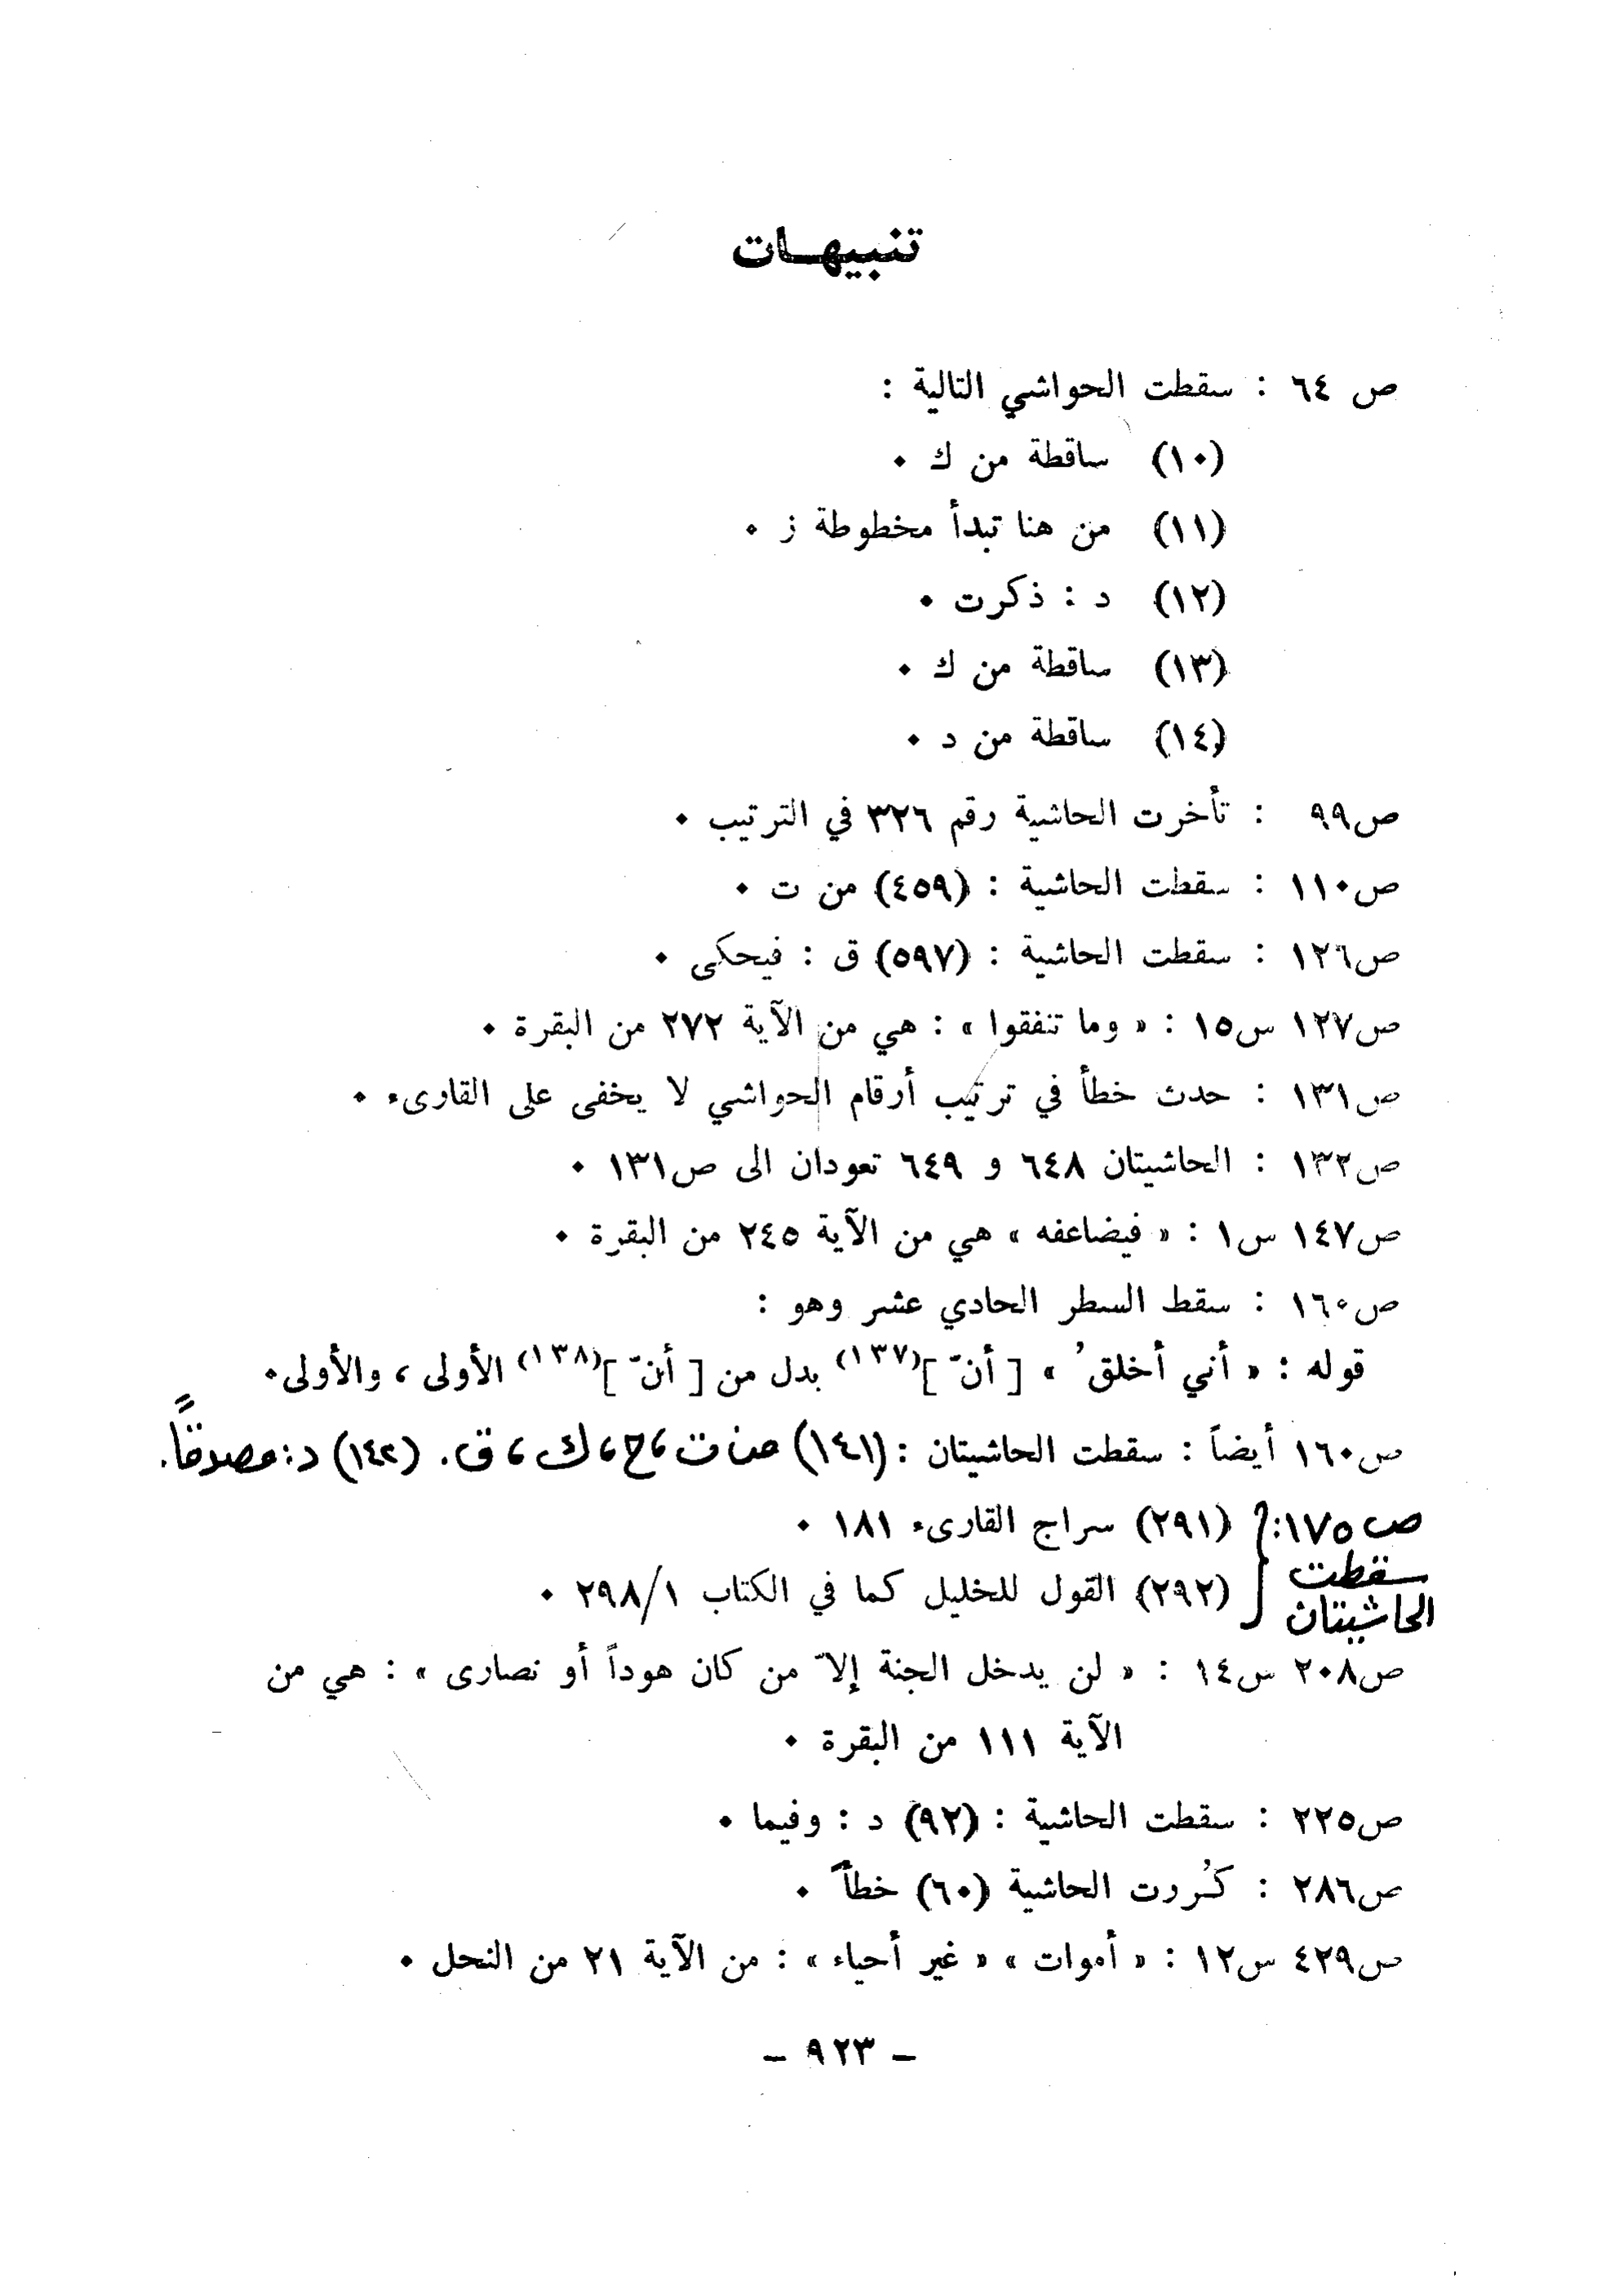 تنبيهـات
ص ٦٤ : سقطت الحواشي التالية :
(١٠) ساقطة من ك ٠
(١١) من هنا تبدأ مخطوطة ز ٠
(١٢) د : ذكرت ٠
(١٣) ساقطة من ك ٠
(١٤) ساقطة من د ٠
ص٩٩ : تأخرت الحاشية رقم ٣٢٦ في الترتيب ٠
ص١١٠ : سقطت الحاشية : (٤٥٩) من ت ٠
ص١٢٦ : سقطت الحاشية : (٥٩٧) ق : فيحكى ٠
ص١٢٧ س١٥ : « وما تنفقوا » : هي من الآية ٢٧٢ من البقرة ٠
ص١٣١ : حدث خطأ في ترتيب أرقام الحواشي لا يخفى على القارىء ٠
ص١٣٢ : الحاشيتان ٦٤٨ و ٦٤٩ تعودان الى ص١٣١ ٠
ص١٤٧ س١ : « فيضاعفه » هي من الآية ٢٤٥ من البقرة ٠
ص١٦٠ : سقط السطر الحادي عشر وهو :
قوله : « أني أخلقُ » [ أنّ ](١٣٧) بدل من [ أنّ ](١٣٨) الأولى ، والأولى٠
ص١٦٠ أيضاً : سقطت الحاشيتان : (١٤١) من ت ، ح ، ك ، ق . (١٤٢) د : مصدقاً .
ص١٧٥: { (٢٩١) سراج القارىء ١٨١ ٠
سقطت
الحاشيتان (٢٩٢) القول للخليل كما في الكتاب ٢٩٨/١ ٠
ص٢٠٨ س١٤ : « لن يدخل الجنة إلاّ من كان هوداً أو نصارى » : هي من
الآية ١١١ من البقرة ٠
ص٢٢٥ : سقطت الحاشية : (٩٢) د : وفيما ٠
ص٢٨٦ : كُررت الحاشية (٦٠) خطأً ٠
ص٤٢٩ س١٢ : « أموات » « غير أحياء » : من الآية ٢١ من النحل ٠
– ٩٢٣ –